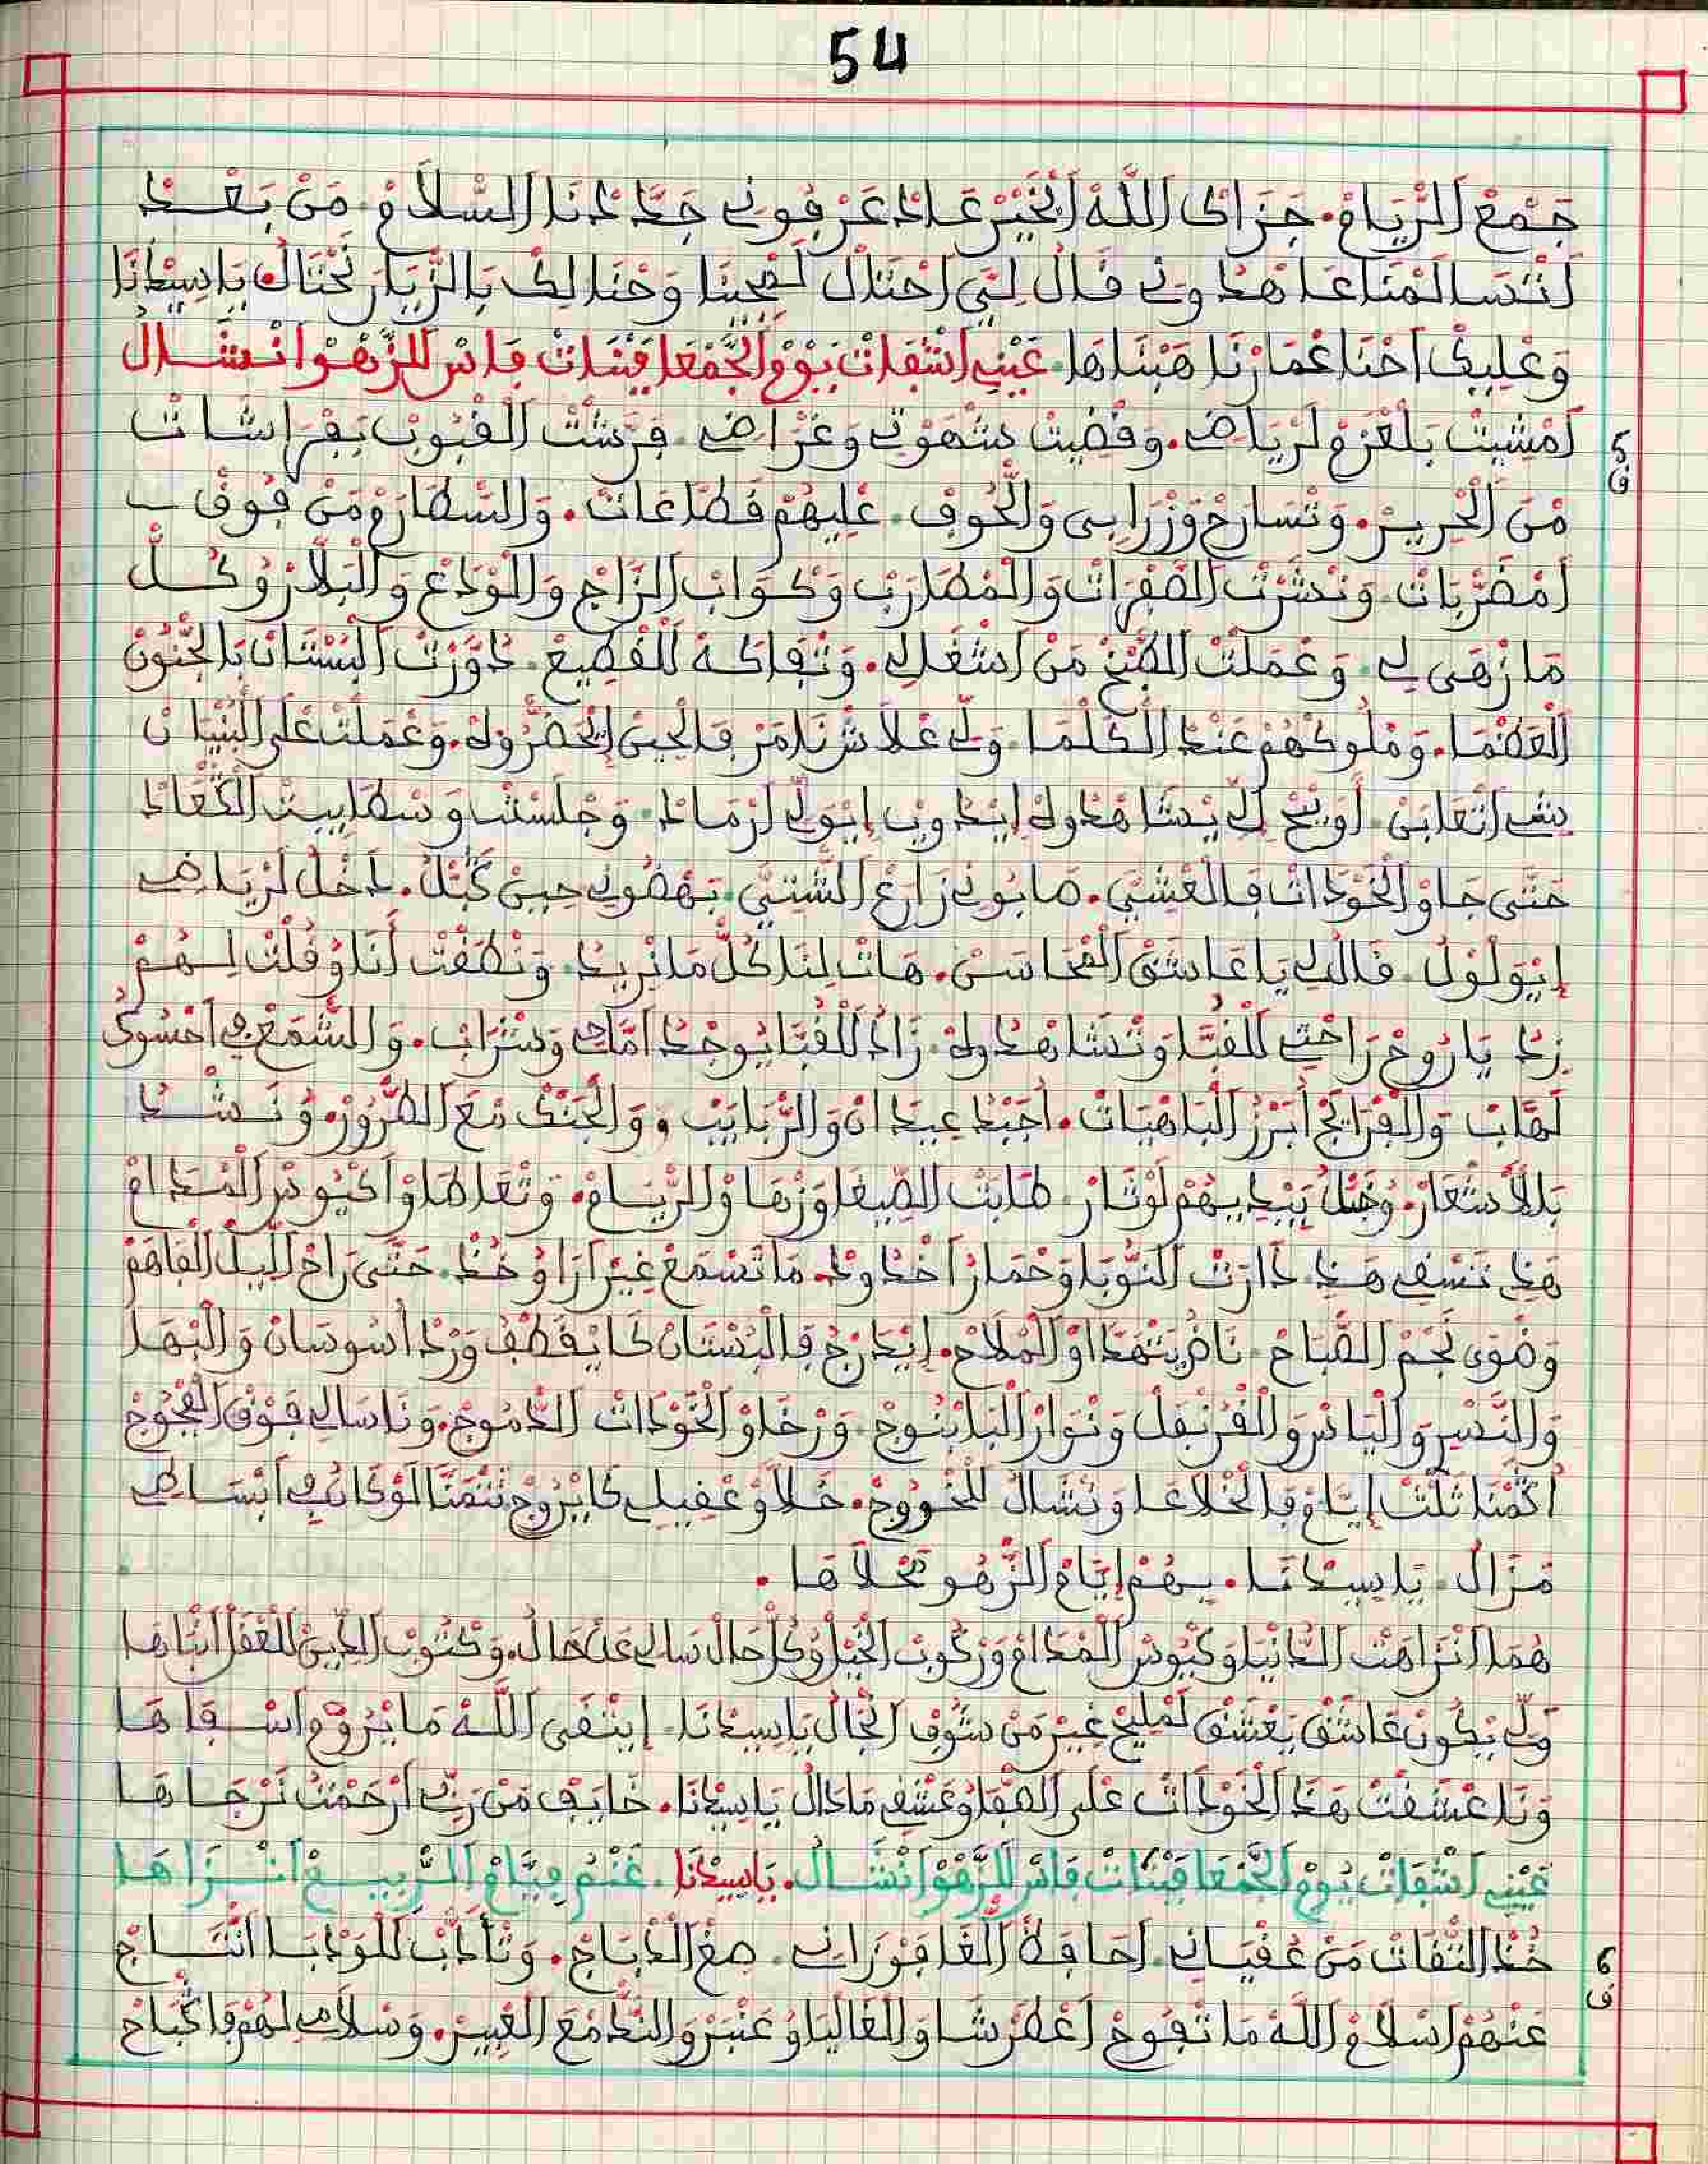 54
جَمْعْ الرْيَامْ. جَزَاكْ اللَّهْ الْخَيْرْ عَادْ عَرْفُونِي جَدَّدْنَا السْلَامْ. مَنْ بَعْدْ
لَنْسَا لَمْنَا عَاهْدُونِي قَالْ لِيَّ احْتَالْ وَحْنَا لِكْ بَالزْيَارْ نَحْتَالُ. يَا سِيدْنَا
وَعْلِيكْ احْنَا عْمَارْنَا هَبْنَاهَا. عَيْنِي اشْقَاتْ يَوْمْ الْجَمْعَا فِبْنَاتْ فَاسْ لَلزَّهْوْ انْشَالُ
5
ق
امْشِيتْ بَلْعَزْمْ لَرْيَاضِي. وَقْضِيتْ شَهْوْتِي وَغْرَاضِي. فَرَّشْتْ الْقْبُوبْ بَفْرَاشَاتْ
مْنَ الْحْرِيرْ. وَتْسَارَحْ وَزْرَابِي وَالْحُوفْ. عْلِيهُمْ قَطَّاعَاتْ. وَالسْطَارَمْ مَنْ فُوقْ
امْضَرّْبَاتْ. وَنْشَرْتْ الصّْفْرَاتْ وَالْمْطَارَبْ وَكْوَابْ الزَّاجْ وَالْوْدَعْ وَالْبَلَّارْ وُكُلّْ
مَا زْهَى لِي. وَعْمَلْتْ الطْبَخْ مَنْ اشْغَالِي. وَتْفَاكَهْ لَلْقْطِيعْ. دَوَّرْتْ الْبَسْتَانْ بَالْجْنُونْ
الْعَظْمَا. وَمْلُوكْهُمْ عَنْدْ الْكَلْمَا. وَلِّي عْلَاشْ نَامَرْ فَالْحِينْ إِيحَضْرُولَهْ. وَعْمَلْتْ عْلَى الْبُنْيَانْ
شِي اتْعَابَنْ. لَوْ بْحَ لِّي يْشَاهْدُولَهْ إِيدُوبْ إِيوَلِّي ارْمَادْ. وَجْلَسْتْ وَسْطَ ابِيتْ الْكْعَادْ
حَتَّى جَاوْ الْخَوْدَاتْ فَالْعْشِيَّ. صَابُونِي زَارَعْ الشّْتِيَّ. نَهْضُونِي حِينْ كَبَّلْ. دَاخْلْ لَرْيَاضِي
إِيوَلْوَلْ. قَالُّولِي يَا عَاشَقْ الْمْحَاسَنْ. هَاتْ لِنَا كُلّْ مَا نْرِيدُ. وَنْطَقْتْ أَنَا وُقُلْتْ لِهُمْ
زِدْ يَا رُوحْ رَاحْتِي لَلْقُبَّا وَتْشَاهْدُولَهْ. زَادُ لَلْقُبَّا يُوجْدُ وَشْرَابْ. وَالشَّمْعْ فِي احْسُوكُ
لَهَّابْ. وَالْفْرَايَحْ ابْرَزْ الْبَاهْيَاتْ. اجَبْدُ عِيدَانْ وَالرّْبَايَبْ. وَالْجَنْكْ مْعَ الطَّرُورْ. وُنْشْدْ
بَالْاَشْعَارْ. بِيدِيهُمْ لَوْتَارْ. طَابَتْ الصِّيغَا وَزْهَاوْ الرّْيَامْ. وَتْعَاطَاوْ اكْيُوسْ الْمْدَامْ
هَذِي تَسْقِي هَذِي. دَارَتْ النُّوبَا وَحْمَارْ اخْدُودْ. مَا تَسْمَعْ غِيرْ ارَا وُخُذْ. حَتَّى رَاحْ اللِّيلْ الْفَاهَمْ
وَضْوَى نَجْمْ الصّْبَاحْ. نَاضْ يَتْهَدَّاوْ الْمْلَاحْ. إِيدَرَّجْ فَالْبُسْتَانْ كَا يْقَطَّفُ وَرْدْ اسُوسَانْ وَالْبْهَا
وَالنَّسْرِ وَالْيَاسْ وَالْقْرُنْفَلْ وَنْوَارْ الْبَابُنُوجْ. وَرْخَاوْ الْخَوْدَاتْ الدّْمُوجْ. وَنَا سَالِي فَوْقْ الْفْجُوجْ
اكْمَنَا ثَلْثْ إِيَّامْ فَالْخْلَاعَا وَنْشَالُ لَلْخْرُوجْ. خَلَّاوْ عْقِيلِي كَا يْرُوجْ نَتْمَنَّا لَوْ كَانْ فِي ابْسَاطِي
مَزَالْ. يَا سِيدْنَا. بِهُمْ إِيَّامْ الزَّهُو تَحْلَاهَا.
هُمَا انْزَاهْتْ الدَّنْيَا وَكْيُوسْ الْمْدَامْ وَرْكُوبْ الْخَيْلْ وُكُلّْ حَالْ سَالِي عَنْ حَالُ. وَكْتُوبْ الدِّينْ لَلْعْقَلْ انْبَاهَا
وَلِّي يْكُونْ عَاشَقْ يَعْشَقْ لَمْلِيحْ غِيرْ مَنْ شَوْفْ الْخَالْ يَا سِيدْنَا. إِيتْقَى اللَّهْ مَا يْرَوَّمْ اسْقَاهَا
وَنَا عْشَقْتْ هَذَا الْخَوْدَاتْ عْلَى الصّْفَا وُعَشْقِي مَا دَالْ يَا سِيدْنَا. خَايَفْ مَنْ رَبِّي ارْحَمْتُ نَرْجَاهَا
عَيْنِي اشْقَاتْ يُومْ الْجَمْعَا فِبْنَاتْ فَاسْ لَلزَّهْوْ انْشَالُ. يَا سِيدْنَا. غَنْمُ فِيَّامْ الرّْبِيعْ انْزَاهَا
6
ق
خُذْ التّْقَاتْ مَنْ عُقْيَانِي. احَافَظْ صِغْ الدّْبَاجْ. وَتَأَدَّبْ لَلْوْدْبَا انْتَاجْ
عَنْهُمْ اسْلَامْ اللَّهْ مَا تْفُوحْ اعْطَرْشَا وَالْغَالْيَا وُعَنْبَرْ وَالنَّدّْ مْعَ الْعْبِيرْ. وَسْلَامِي لَهُمْ